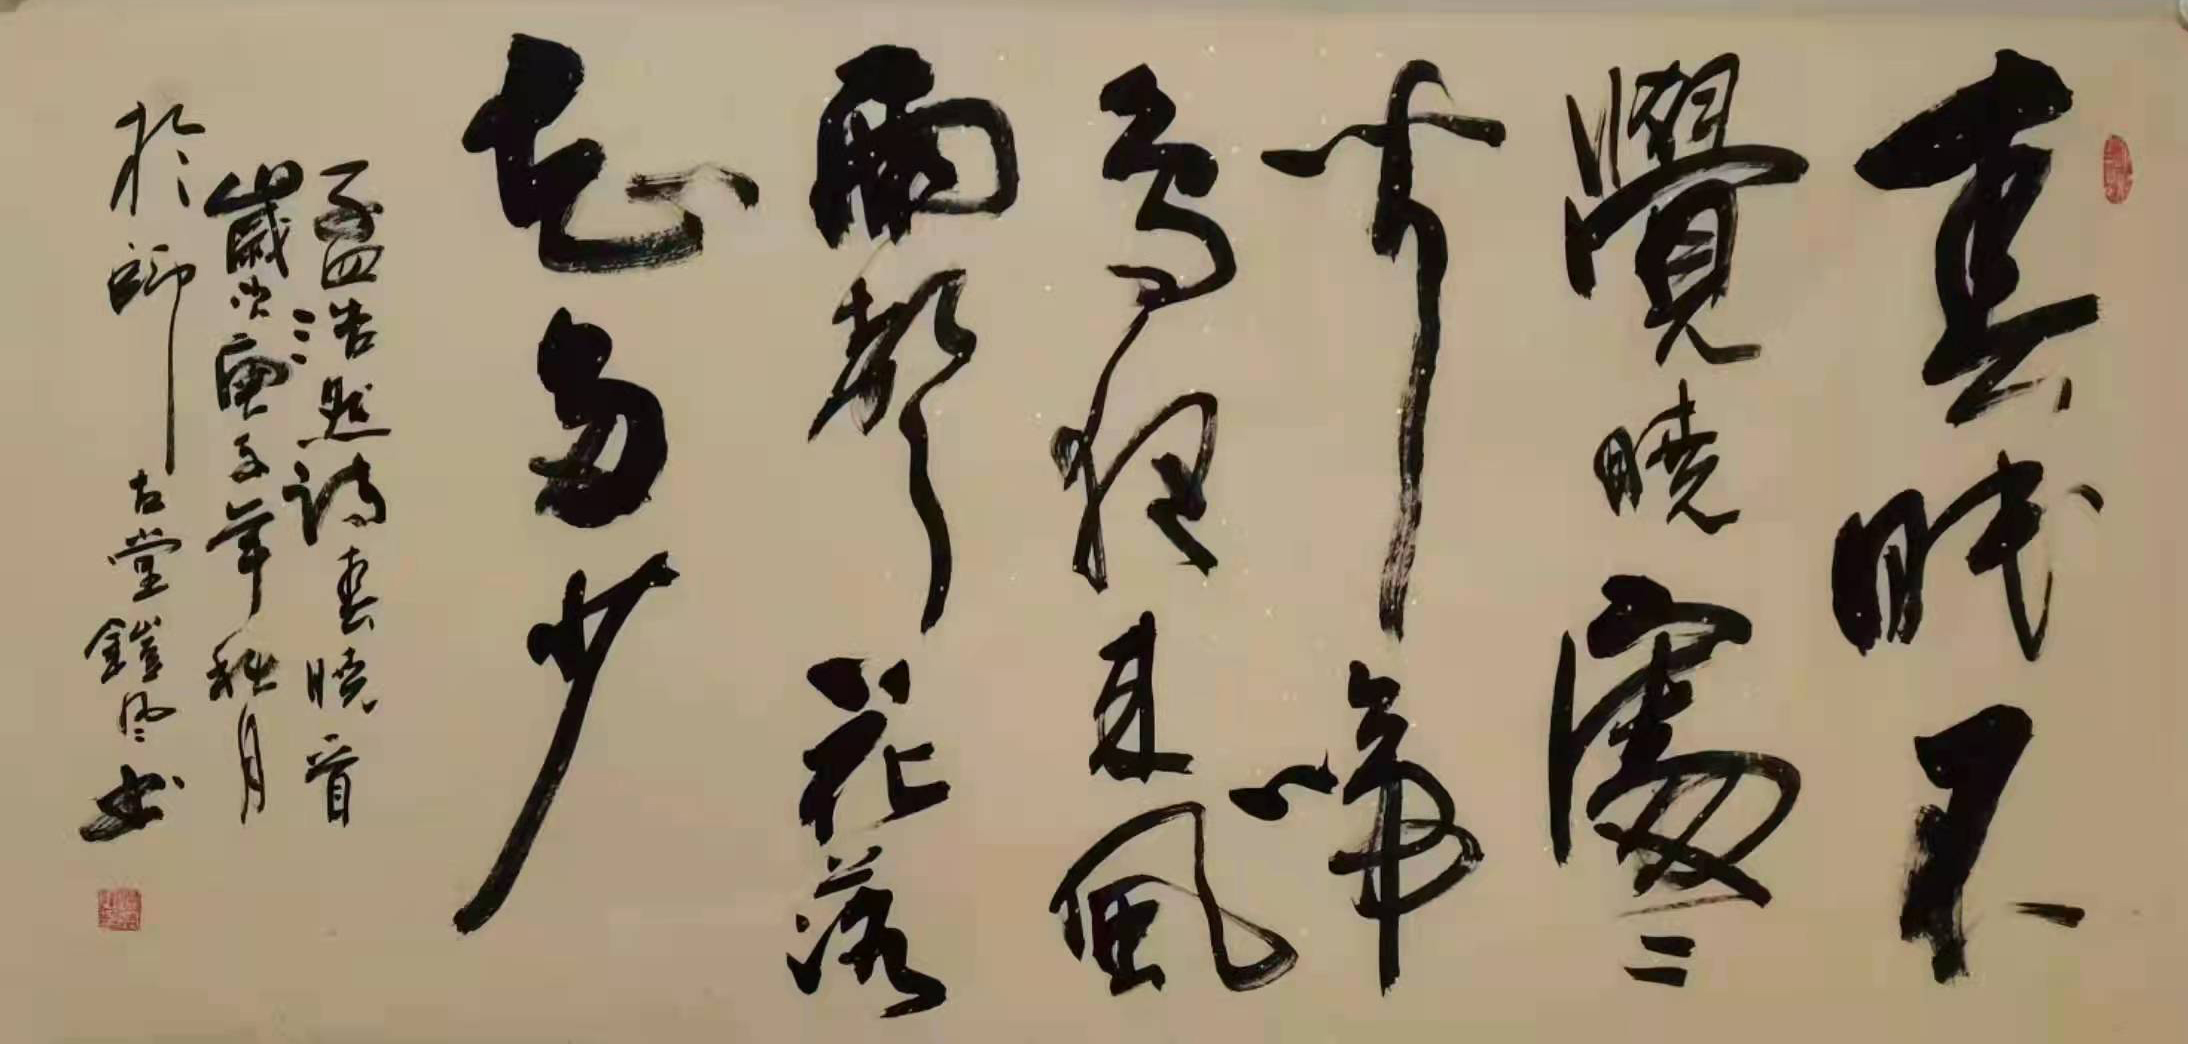 春眠不
覺曉處々
聞啼
鳥夜來風
雨聲花落
知多少
孟浩然詩春曉一首
歲次庚子年秋月
於師古堂鎧風書